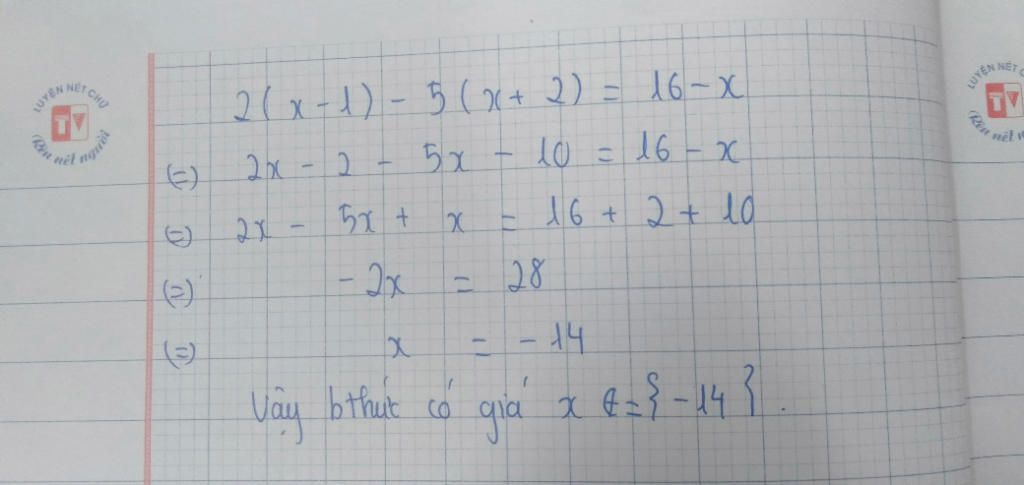 LUYỆN NÉT CHỮ
TV
Rèn nết người
LUYỆN NÉT C
T
Rèn nết
2(x-1) - 5(x+2) = 16-x
(=) 2x - 2 - 5x - 10 = 16 - x
(=) 2x - 5x + x = 16 + 2 + 10
(=) -2x = 28
(=) x = -14
Vậy bthức có giá x ∈={-14}.